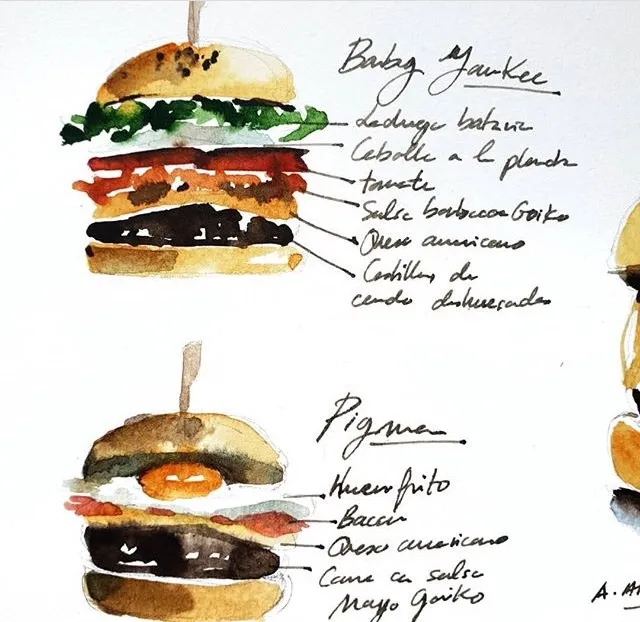 Barbq Yankee
Lechuga batavia
Cebolla a la plancha
tomate
Salsa barbacoa Goiko
Queso americano
Costillas de
cerdo deshuesadas
Pigman
Huevo frito
Bacon
Queso americano
Carne con salsa
Mayo Goiko
A.